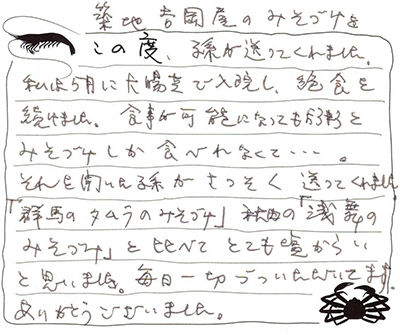 築地吉岡屋のみそづけを
この度、孫が送ってくれました。
私は5月に大腸炎で入院し、絶食を
続けました。食事が可能になってもお粥と
みそづけしか食べれなくて・・・。
それを聞いた孫がさっそく送ってくれました
「群馬のタムラのみそづけ」秋田の「浅舞の
みそづけ」と比べてとても塩からい
と思いました。毎日一切づついただいてます。
ありがとうございました。